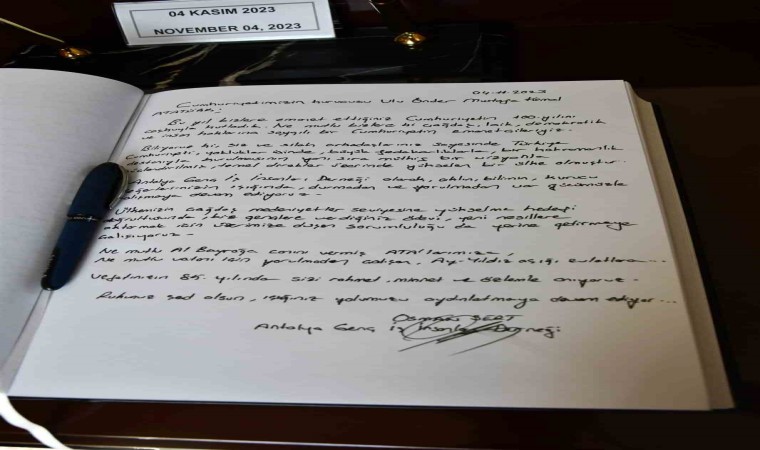 04 KASIM 2023
NOVEMBER 04, 2023
04.11.2023
Cumhuriyetimizin kurucusu Ulu Önder Mustafa Kemal
ATATÜRK;
Bu yıl bizlere emanet ettiğiniz Cumhuriyetin 100. yılını
coşkuyla kutladık. Ne mutlu bizlere ki çağdaş, laik, demokratik
ve insan haklarına saygılı bir Cumhuriyetin emanetçileriyiz.
Biliyoruz ki, siz ve silah arkadaşlarınız sayesinde Türkiye
Cumhuriyeti, yokluklar içinde, büyük fedakarlıklarla, bir kahramanlık
destanıyla kurulmasının yanı sıra müthiş bir vizyonla
temel direkler üzerinde yükselen bir ülke olmuştur.
Antalya Genç İş İnsanları Derneği olarak, aklın, bilimin, kurucu
değerlerimizin ışığında, durmadan ve yorulmadan var gücümüzle
çalışmaya devam ediyoruz.
Ülkemizin çağdaş medeniyetler seviyesine yükselme hedefi
doğrultusunda, biz gençlere verdiğiniz ödevi, yeni nesillere
aktarmak için üzerimize düşen sorumluluğu da yerine getirmeye
çalışıyoruz.
Ne mutlu Al Bayrağa canını vermiş ATA'larımıza,
Ne mutlu vatanı için yorulmadan çalışan, Ay-Yıldız aşığı evlatlara...
Vefatınızın 85. yılında sizi rahmet, minnet ve özlemle anıyoruz.
Ruhunuz şad olsun, ışığınız yolumuzu aydınlatmaya devam ediyor...
Osman SERT
Antalya Genç İş İnsanları Derneği